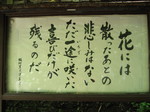 花には
散ったあとの
悲しみはない
ただ一途に咲いた
喜びだけが
残るのだ